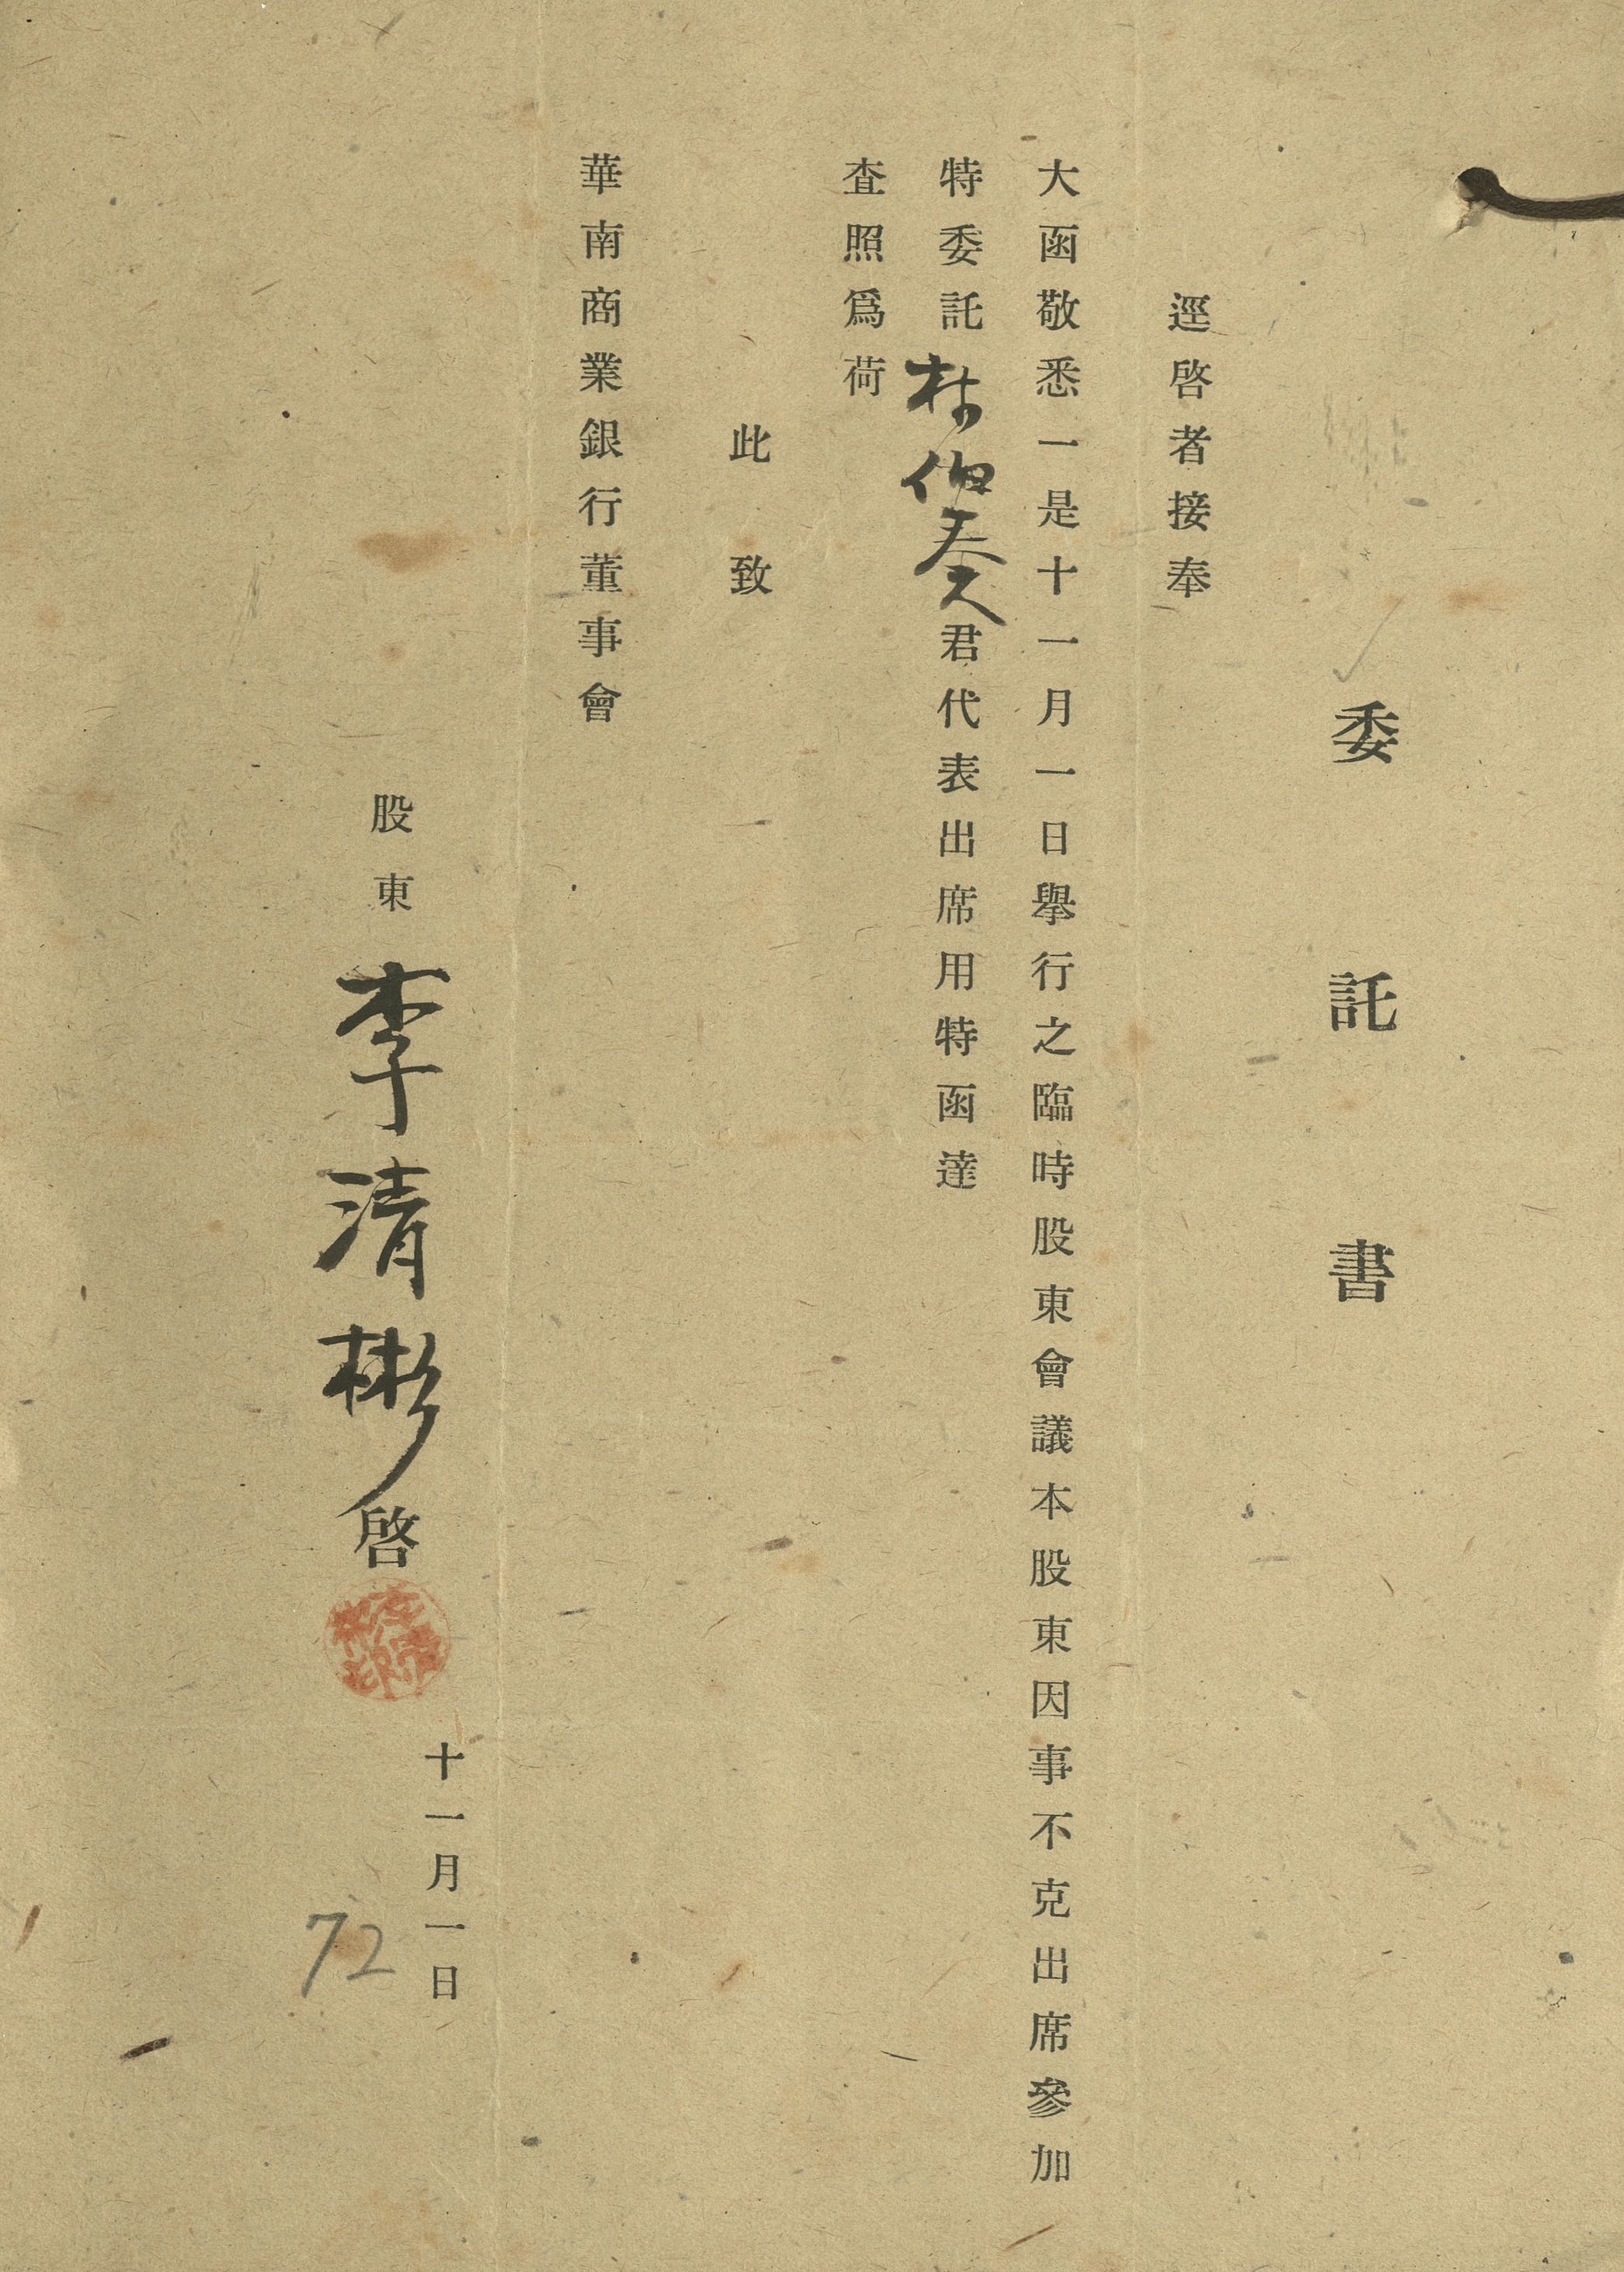 委託書
逕啓者接奉
大函敬悉一是十一月一日舉行之臨時股東會議本股東因事不克出席參加
特委託林伯奏君代表出席用特函達
査照爲荷
此致
華南商業銀行董事會
股東李清彬啓
十一月一日
72